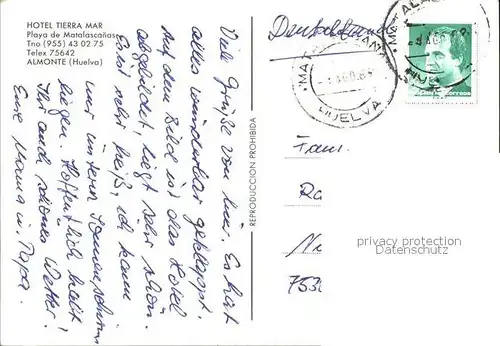 HOTEL TIERRA MAR
Playa de Matalascañas
Tno (955) 43 02 75
Telex 75642
ALMONTE (Huelva)
Viele Grüße von hier. Es hat
alles wunderbar geklappt.
Auf dem Bild ist das Hotel
abgebildet, liegt sehr schön.
Es ist sehr heiß, ich kann
nur unterm Sonnenschirm
liegen. Hoffentlich habt
Ihr auch schönes Wetter!
Eure Mama u. Papa.
REPRODUCCION PROHIBIDA
Deutschland
MATALASCAÑAS
HUELVA
correos
Fam.
Ra
Ni
753
privacy protection
Datenschutz